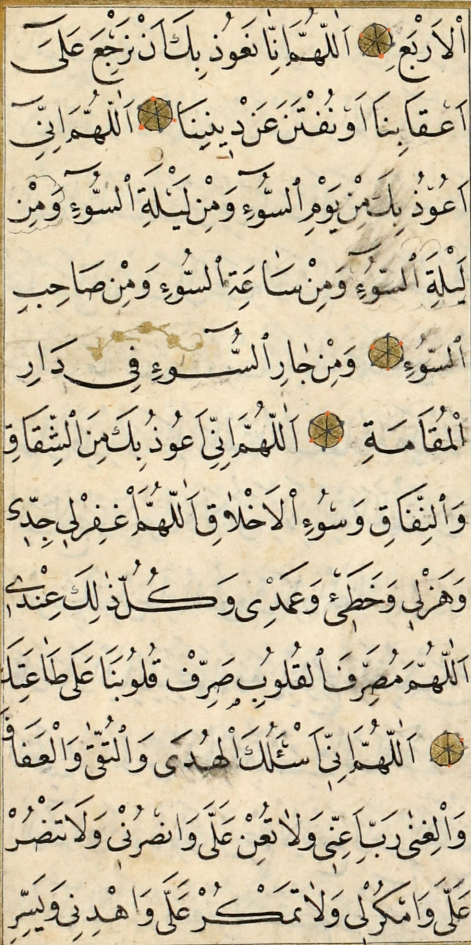 اَلْاَرْبَعِ اَللّٰهُمَّ اِنَّا نَعُوذُ بِكَ اَنْ نَرْجِعَ عَلٰى
اَعْقَابِنَا اَوْ نُفْتَنَ عَنْ دِينِنَا اَللّٰهُمَّ اِنِّى
اَعُوذُ بِكَ مِنْ يَوْمِ السُّوءِ وَمِنْ لَيْلَةِ السُّوءِ وَمِنْ
لَيْلَةِ السُّوءِ وَمِنْ سَاعَةِ السُّوءِ وَمِنْ صَاحِبِ
السُّوءِ وَمِنْ جَارِ السُّوءِ فِى دَارِ
الْمُقَامَةِ اَللّٰهُمَّ اِنِّى اَعُوذُ بِكَ مِنَ الشِّقَاقِ
وَالنِّفَاقِ وَسُوءِ الْاَخْلَاقِ اَللّٰهُمَّ اغْفِرْلِى جِدِّى
وَهَزْلِى وَخَطَئِى وَعَمَدِى وَكُلُّ ذٰلِكَ عِنْدِى
اَللّٰهُمَّ مُصَرِّفَ الْقُلُوبِ صَرِّفْ قُلُوبَنَا عَلٰى طَاعَتِكَ
اَللّٰهُمَّ اِنِّى اَسْئَلُكَ الْهُدٰى وَالتُّقٰى وَالْعَفَافَ
وَالْغِنٰى رَبِّ اَعِنِّى وَلَا تُعِنْ عَلَىَّ وَانْصُرْنِى وَلَا تَنْصُرْ
عَلَىَّ وَامْكُرْلِى وَلَا تَمْكُرْ عَلَىَّ وَاهْدِنِى وَيَسِّرِ